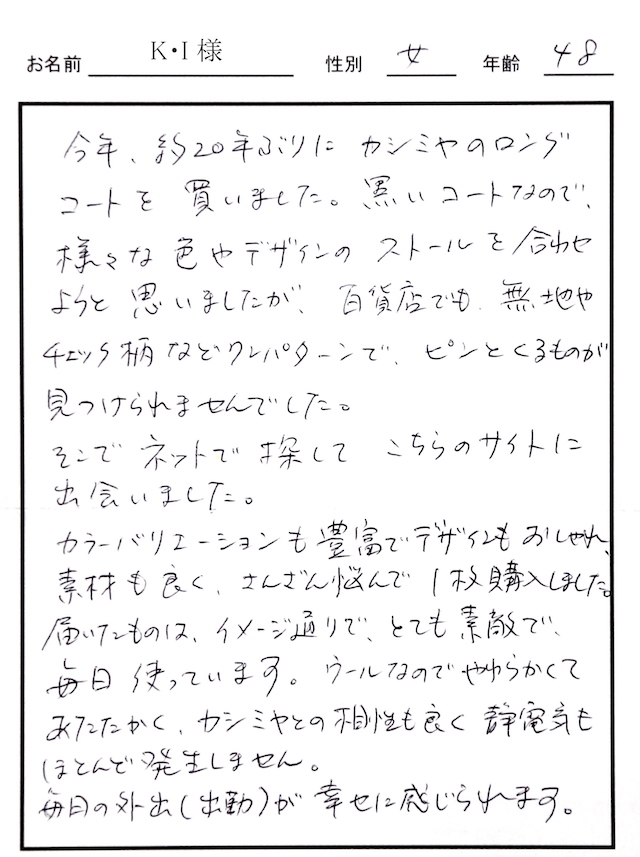 お名前 K・I 様 性別 女 年齢 48
今年、約20年ぶりに カシミヤのロング
コートを 買いました。黒いコートなので、
様々な色やデザインの ストールを合わせ
ようと 思いましたが、百貨店でも、無地や
チェック柄などワンパターンで、ピンとくるものが
見つけられませんでした。
そこで ネットで探して こちらのサイトに
出会いました。
カラーバリエーションも豊富でデザインもおしゃれ、
素材も良く、さんざん悩んで1枚購入しました。
届いたものは、イメージ通りで、とても素敵で、
毎日 使っています。ウールなのでやわらかくて
あたたかく、カシミヤとの相性も良く 静電気も
ほとんど発生しません。
毎日の外出(出勤)が 幸せに感じられます。